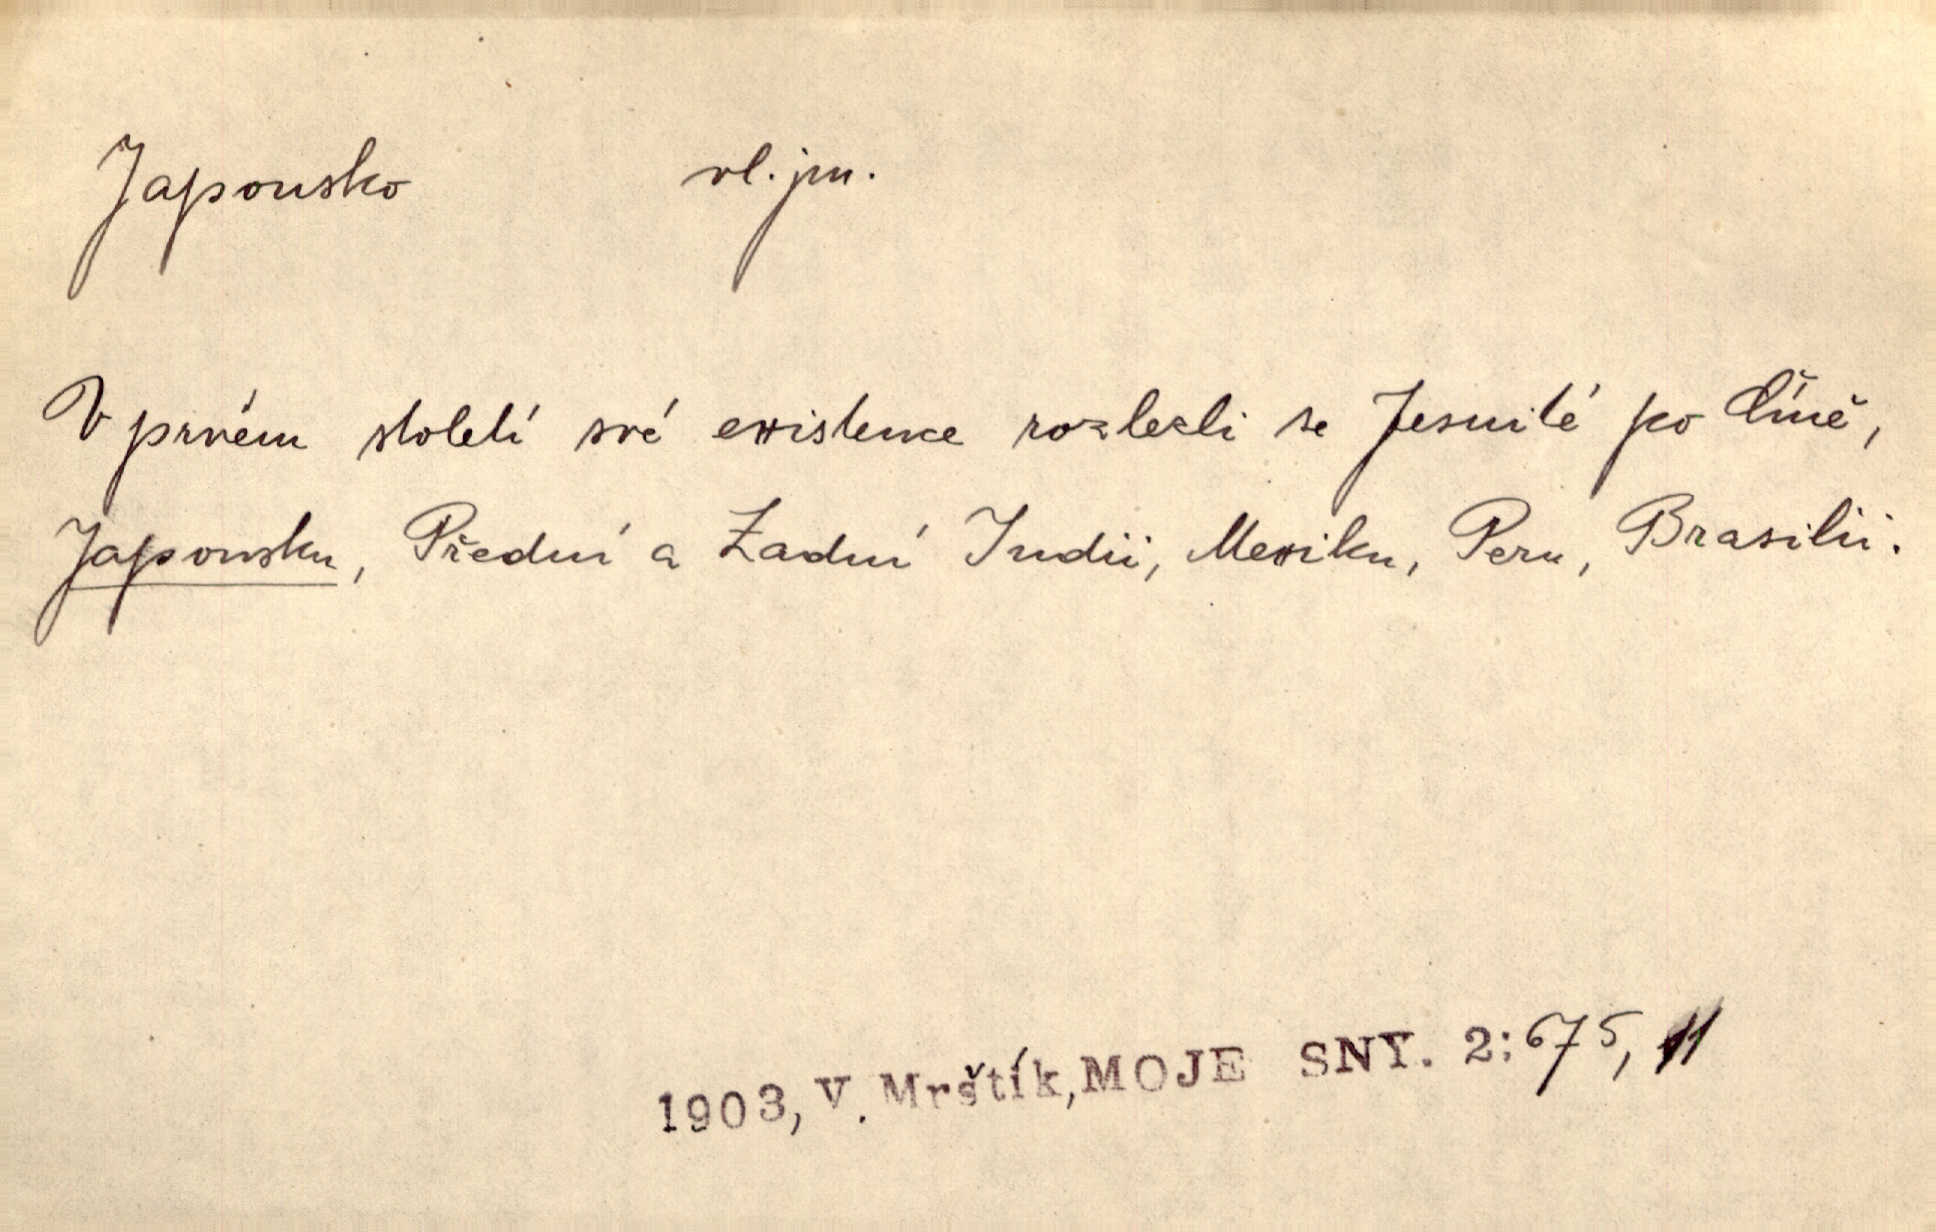 Japonsko vl. jm.
V prvém století své existence rozlezli se Jesuité po Číně,
Japonsku, Přední a Zadní Indii, Mexiku, Peru, Brasilii.
1903, V. Mrštík, MOJE SNY. 2: 675, 11